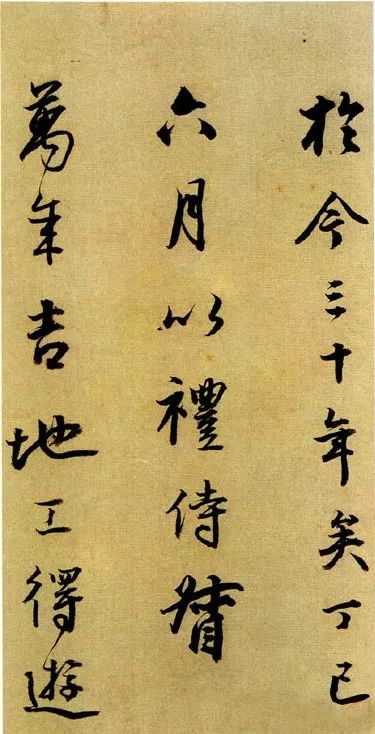 於今三十年矣丁巳
六月以禮侍督
萬年吉地工得遊